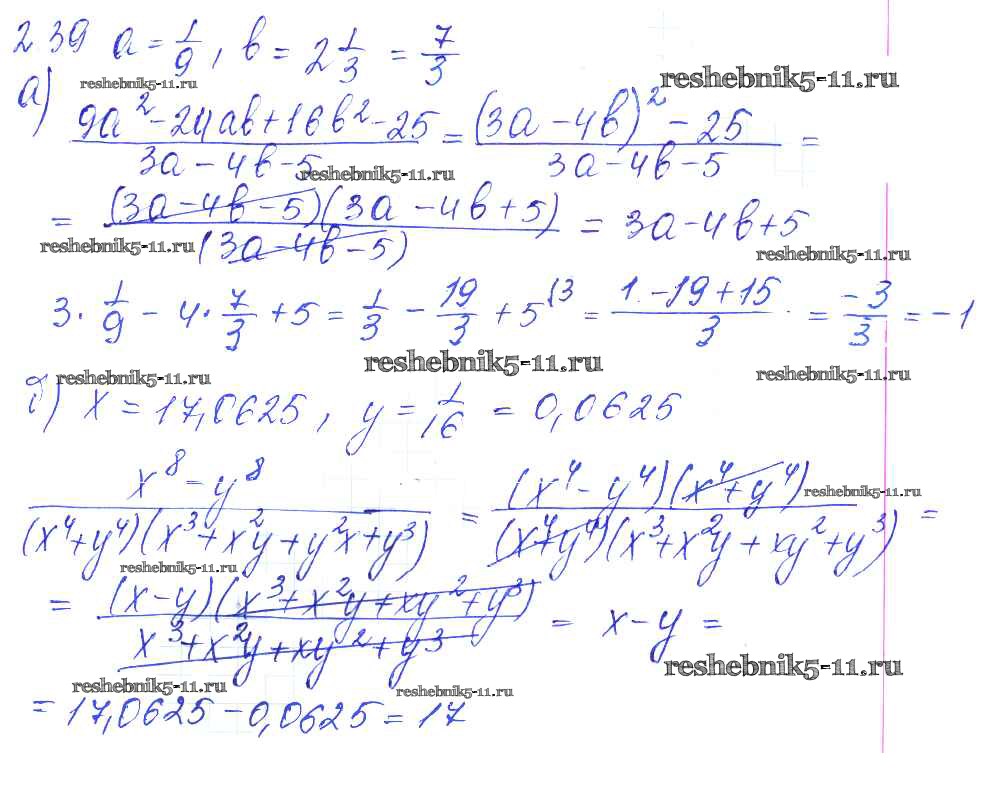 239 a = 1/9, b = 2 1/3 = 7/3
reshebnik5-11.ru reshebnik5-11.ru
а) (9a² - 24ab + 16b² - 25)/(3a - 4b - 5) = ((3a - 4b)² - 25)/(3a - 4b - 5) =
reshebnik5-11.ru
= ((3a - 4b - 5)(3a - 4b + 5))/((3a - 4b - 5)) = 3a - 4b + 5
reshebnik5-11.ru reshebnik5-11.ru
3 · 1/9 - 4 · 7/3 + 5 = 1/3 - 19/3 + 5 (3 = (1 - 19 + 15)/3 = -3/3 = -1
reshebnik5-11.ru reshebnik5-11.ru reshebnik5-11.ru
б) x = 17,0625, y = 1/16 = 0,0625
(x⁸ - y⁸)/((x⁴ + y⁴)(x³ + x²y + y²x + y³)) = ((x⁴ - y⁴)(x⁴ + y⁴))/((x⁴ + y⁴)(x³ + x²y + xy² + y³)) =
reshebnik5-11.ru reshebnik5-11.ru
= ((x - y)(x³ + x²y + xy² + y³))/(x³ + x²y + xy² + y³) = x - y =
reshebnik5-11.ru reshebnik5-11.ru reshebnik5-11.ru
= 17,0625 - 0,0625 = 17